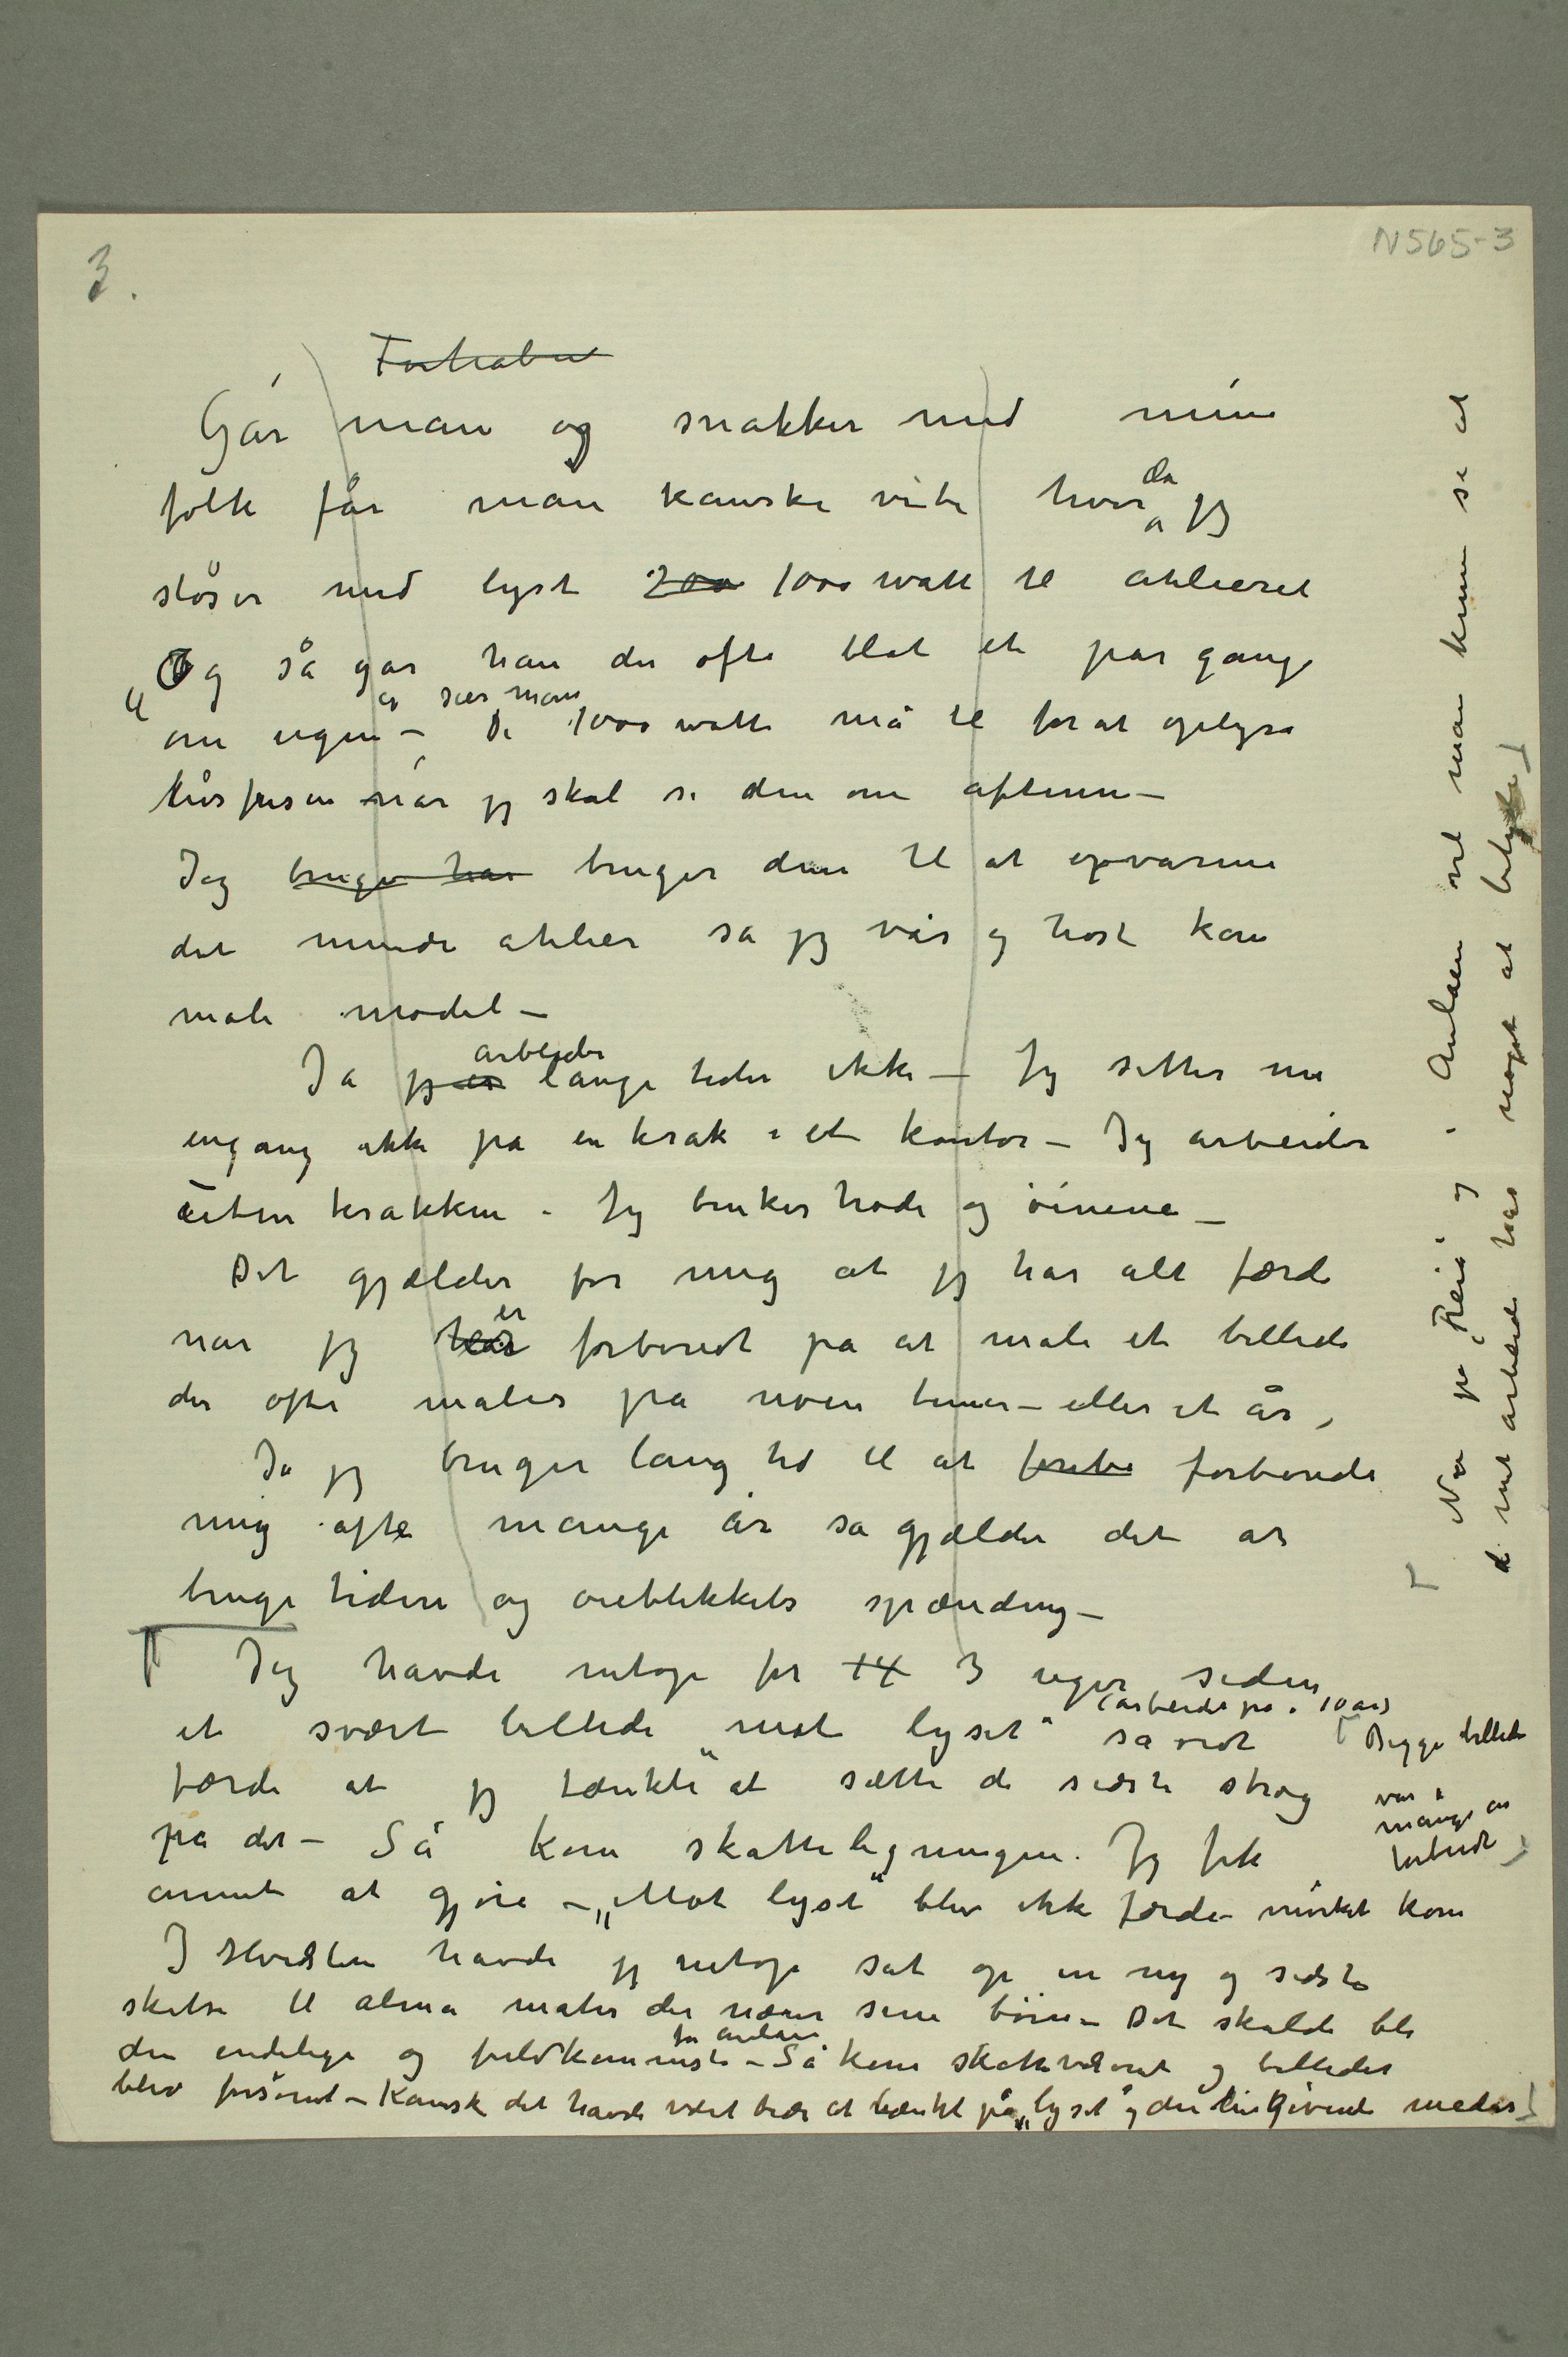 3.
N565-3
Forhaben
Går man og snakker med mine
folk får man kanske vite hvor da jeg
sløser med lyset 200 1000 watt til atelieret
Og så går han der ofte blot et par gange
om ugen – sier man De 1000 watt må til for at oplyse
livsfrisen når jeg skal se den om aftenen –
Jeg bruger har bruger den til at opvarme
det mindre atelier så jeg vår og høst kan
male model –
Ja jeg er arbeider lange tider ikke – Jeg sitter nu
engang ikke på en krak i et kontor – Jeg arbeider
uten krakken – Jeg bruker hode og øinene –
Det gjælder for mig at jeg har alt færdi
når jeg har er forberedt på at male et billede
der ofte males på noen timer – eller et år,
Ja jeg bruger lang tid til at forbe forberede
mig ofte mange år så gjælder det at
bruge tiden og øieblikkets spænding –
Jeg havde netop for 14 3 uger siden
et svært billede "mot lyset" (arbeidet på i 10 år) så vidt
færdi at jeg tænkte at sætte de sidste strøg
på det – Så kom skatteligningen. Jeg fik
annet at gjøre – „Mot lyset" blev ikke færdi – mørket kom
Begge billeder
var i
mange år
forberedt
I Hvidsten havde jeg netop sat op en ny og sidste
skitse til alma mater der nærer sine børn – Det skulde bli
den endelige og fuldkomneste for aulaen – Så kom skattevæsenet og billedet
blev forsømt – Kanske det havde været bedre at tænkt på „lyset" og den livgivende moder
Nu på „Freia" og i Aulaen vil man kunne se at
mit arbeide har noget at betyde